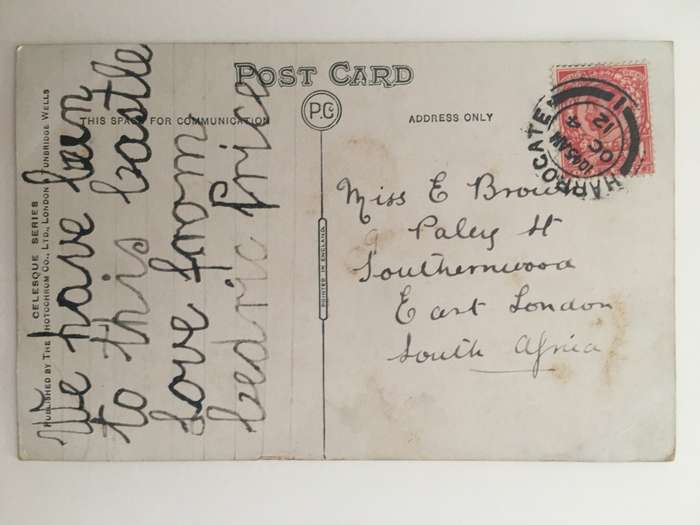 POST CARD
THIS SPACE FOR COMMUNICATION
P.C
ADDRESS ONLY
We have been
to this castle
love from
Cedric Price
CELESQUE SERIES
PUBLISHED BY THE PHOTOCHROM CO., LTD., LONDON TUNBRIDGE WELLS
PRINTED IN ENGLAND
HARROGATE
10.45AM
OC 4
12
1
Miss E Brown
9 Paley St
Southernwood
East London
South Africa